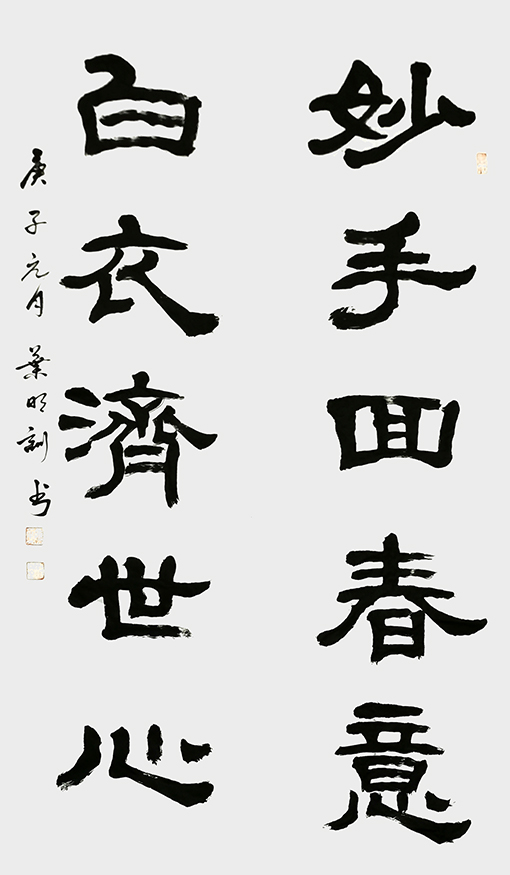 妙手回春意
白衣濟世心
庚子元月 葉明訓书